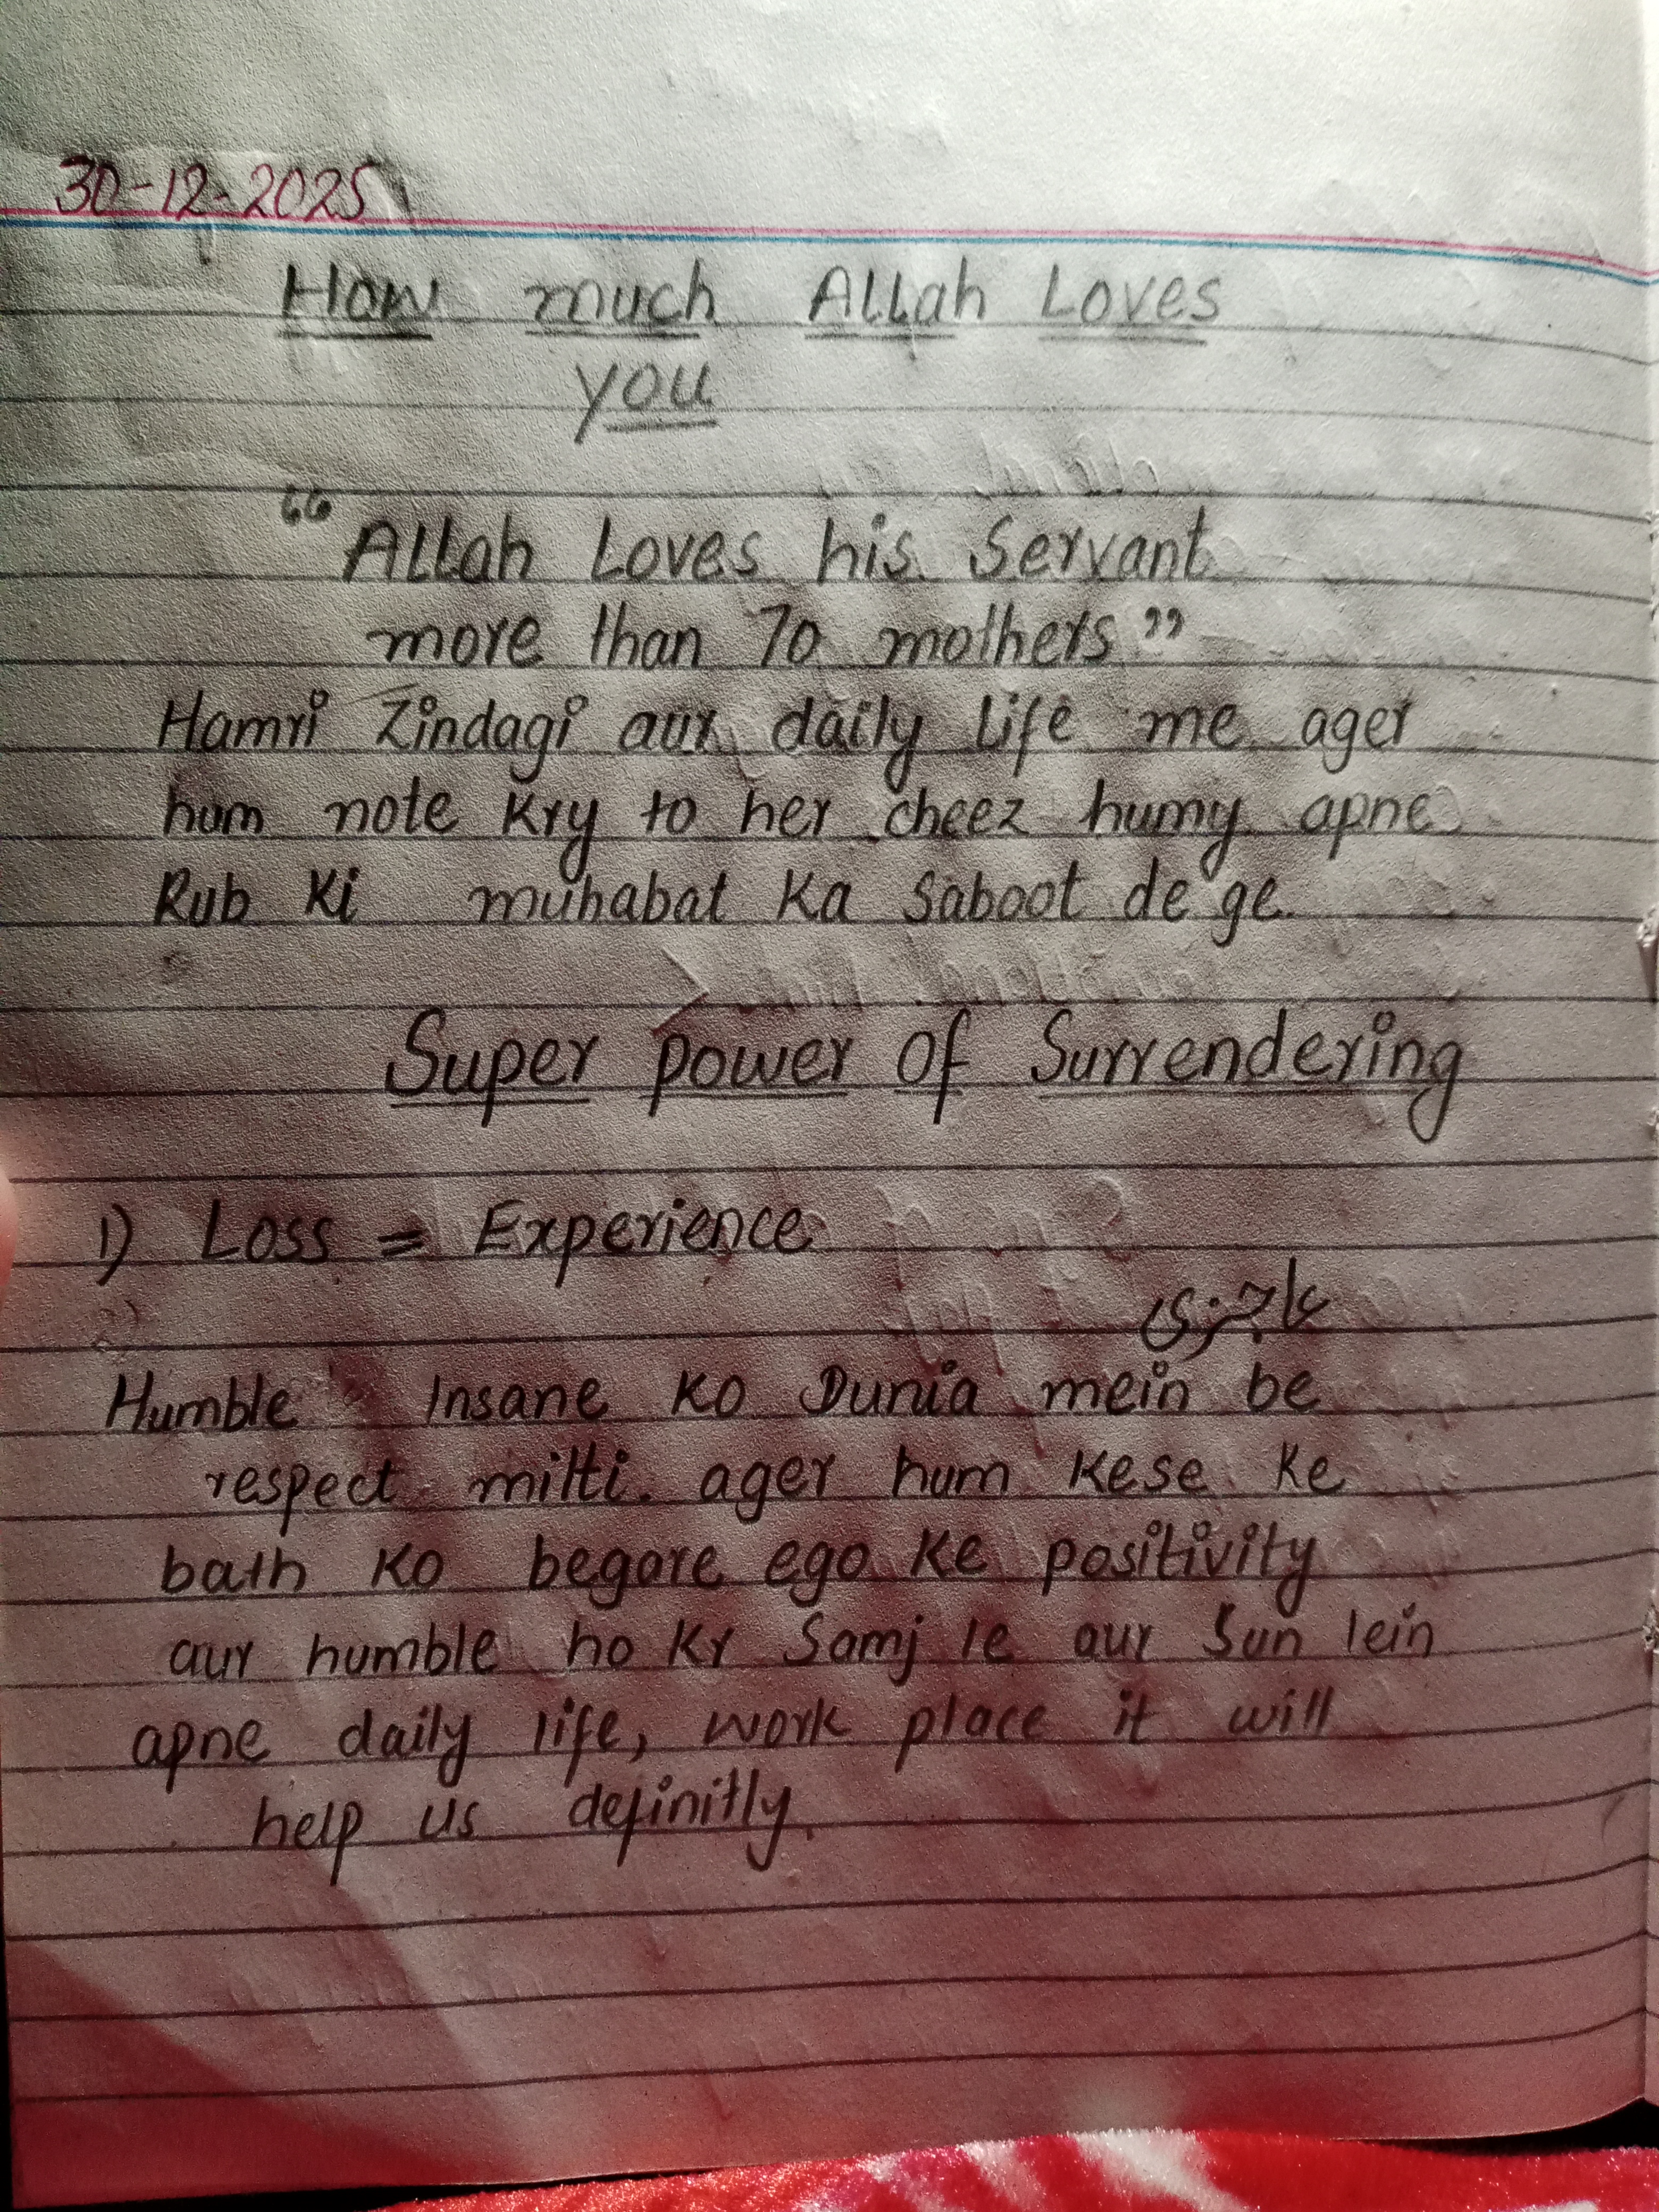 30-12-2025
How much Allah Loves
you
“Allah Loves his Servant
more than 70 mothers”
Hamri Zindagi aur daily life me ager
hum note kry to her cheez humy apne
Rub ki muhabat ka Saboot de ge.
Super power of Surrendering
1) Loss = Experience
عاجزی
Humble Insane ko Dunia mein be
respect milti. ager hum kese ke
bath ko begare ego ke positivity
aur humble ho kr Samj le aur Sun lein
apne daily life, work place it will
help us definitly.